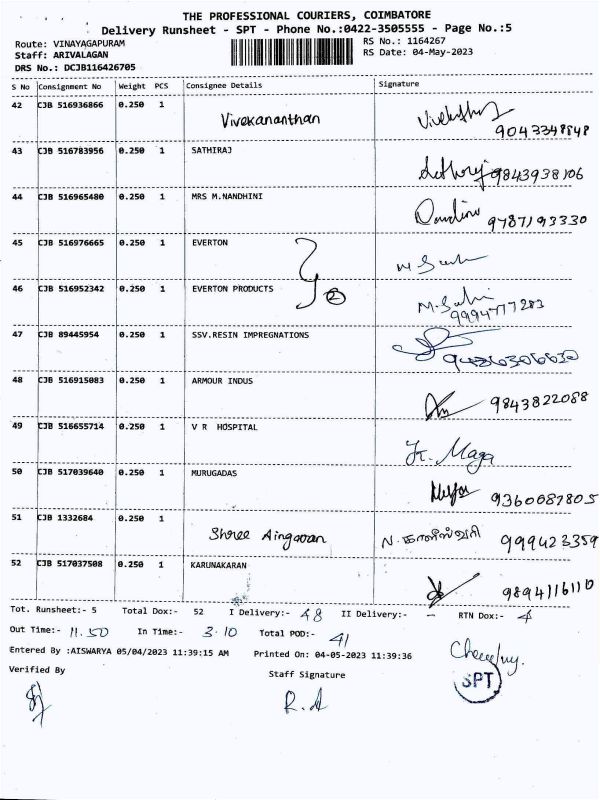 THE PROFESSIONAL COURIERS, COIMBATORE
Delivery Runsheet - SPT - Phone No.:0422-3505555 - Page No.:5
Route: VINAYAGAPURAM RS No.: 1164267
Staff: ARIVALAGAN RS Date: 04-May-2023
DRS No.: DCJB116426705
S No Consignment No Weight PCS Consignee Details Signature
42 CJB 516936866 0.250 1 Vivekananthan
43 CJB 516783956 0.250 1 SATHIRAJ 9843938106
44 CJB 516965480 0.250 1 MRS M.NANDHINI 9787193330
45 CJB 516976665 0.250 1 EVERTON
46 CJB 516952342 0.250 1 EVERTON PRODUCTS 2 9994777283
47 CJB 89445954 0.250 1 SSV.RESIN IMPREGNATIONS
48 CJB 516915083 0.250 1 ARMOUR INDUS 9843822088
49 CJB 516655714 0.250 1 V R HOSPITAL K. Maga
50 CJB 517039640 0.250 1 MURUGADAS 9360087805
51 CJB 1332684 0.250 1 Shree Aingaran 999423359
52 CJB 517037508 0.250 1 KARUNAKARAN 9894116110
Tot. Runsheet:- 5 Total Dox:- 52 I Delivery:- 48 II Delivery:- - RTN Dox:- 4
Out Time:- 11.50 In Time:- 3.10 Total POD:- 41
Entered By :AISWARYA 05/04/2023 11:39:15 AM Printed On: 04-05-2023 11:39:36
Verified By Staff Signature
R.A
SPT